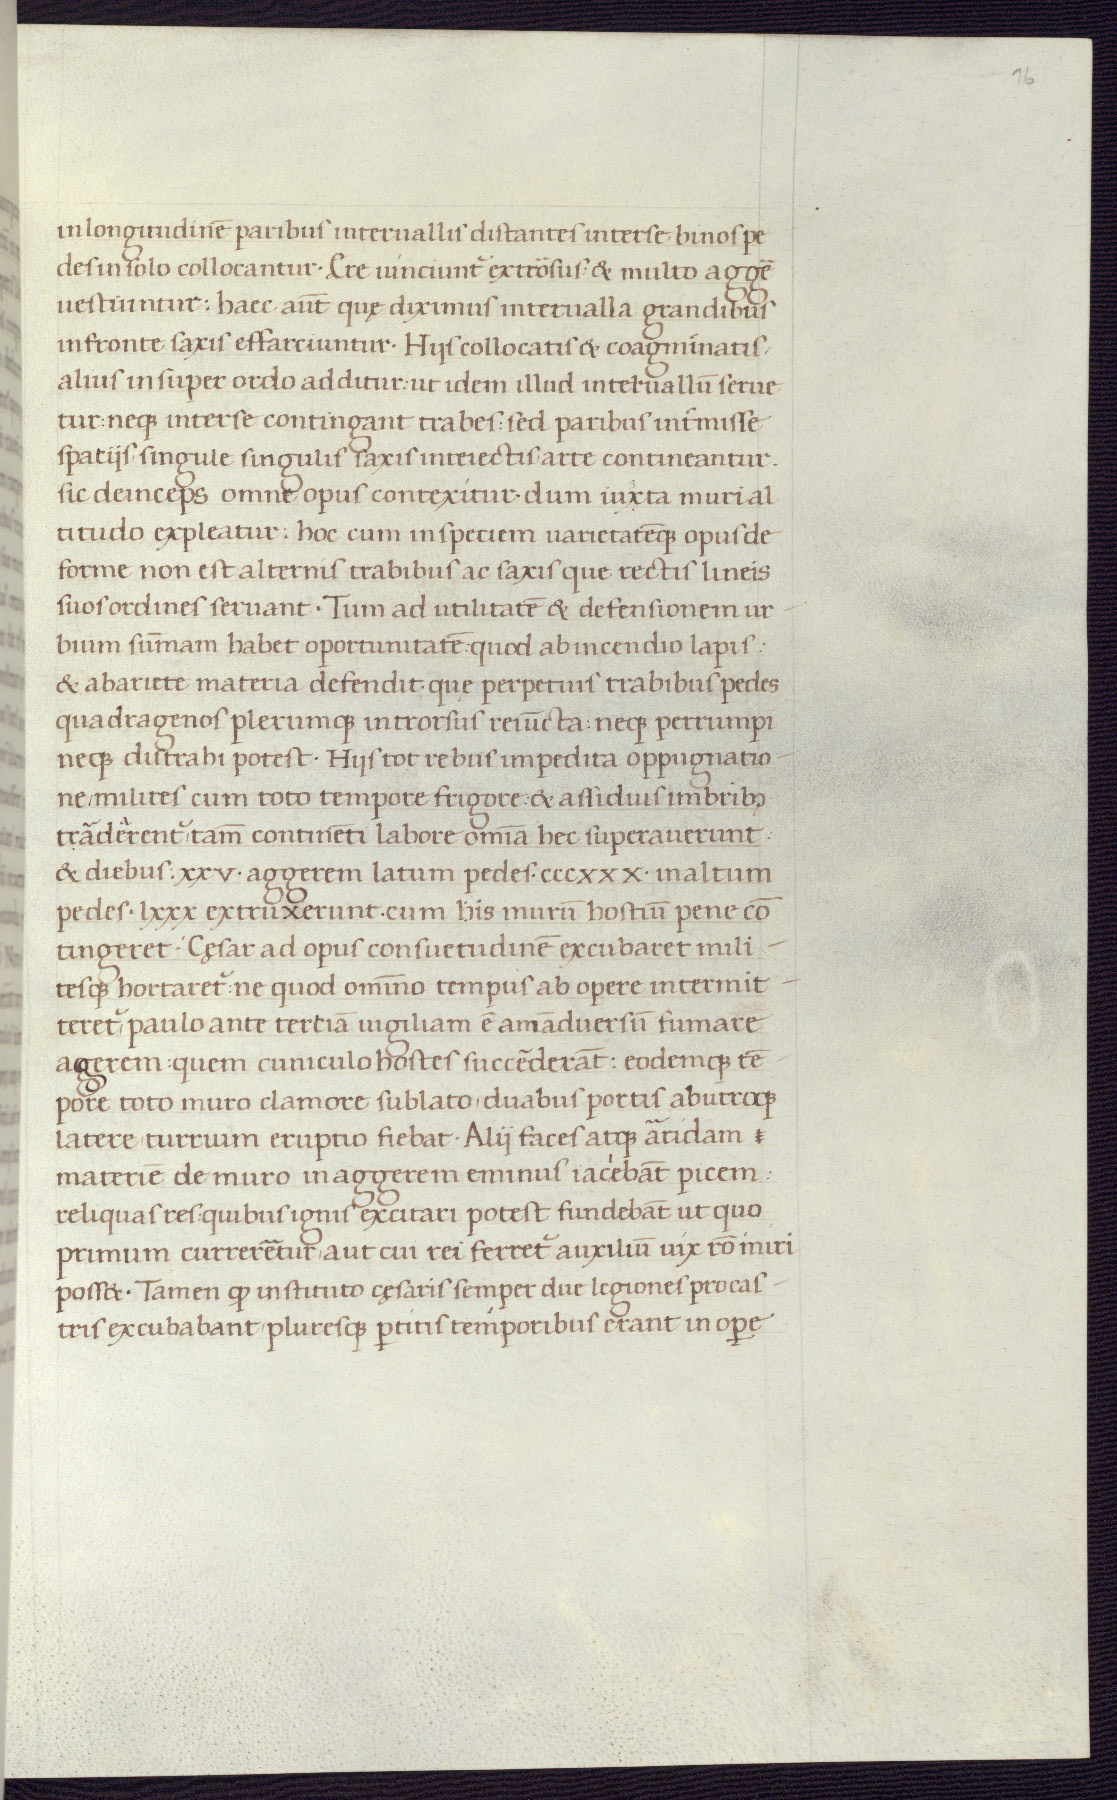 96
in longitudinē paribus interuallis distantes inter se binos pe
des in solo collocantur. Ere iunciunt᷑ extrōsus: & multo aggē
uestiuntur: haec aūt quę diximus interualla grandibus
in fronte saxis effarciuntur. Hijs collocatis & coagminatis,
alius insuper ordo additur: ut idem illud interuallū serue
tur: neqꝫ inter se contingant trabes: sed paribus int̄misse
spatijs singule singulis saxis interiectis arte contineantur.
sic deinceps omne opus contexitur. dum iuxta muri al
titudo expleatur: hoc cum in speciem uarietatēqꝫ opus de
forme non est alternis trabibus ac saxis que rectis lineis
suos ordines seruant. Tum ad utilitatē & defensionem ur-
bium sūmam habet oportunitatē: quod ab incendio lapis:
& ab ariete materia defendit. quę perpetuis trabibus pedes
quadragenos plerumqꝫ introrsus reiūcta: neqꝫ perrumpi
neqꝫ distrahi potest. Hijs tot rebus impedita oppugnatio-
ne, milites cum toto tempore frigore: & assiduis imbribꝫ
trāderent᷑, tam̄ continēti labore omīa hec superauerunt:
& diebus. xxv. aggerem latum pedes. cccxxx. in altum
pedes. lxxx extruxerunt. cum his murū hostiū pene cō
tingeret. Cęsar ad opus consuetudinē excubaret mili-
tesqꝫ hortaret᷑: ne quod omīno tempus ab opere intermit-
teret᷑, paulo ante tertiā uigiliam ē amāduersū fumare
agerem: quem cuniculo hostes succēderāt: eodemqꝫ tē-
pore toto muro clamore sublato, duabus portis ab utroqꝫ
latere turrium eruptio fiebat. Alij faces atqꝫ āridam
materiē de muro in aggerem eminus iacebāt picem:
reliquas res: quibus ignis excitari potest fundebāt ut quo
primum currerētur, aut cui rei ferret᷑ auxiliū uix rō iniri
poss&. Tamen qꝫ instituto cęsaris semper due legiones pro cas-
tris excubabant, pluresqꝫ ꝑtitis temporibus erant in opę